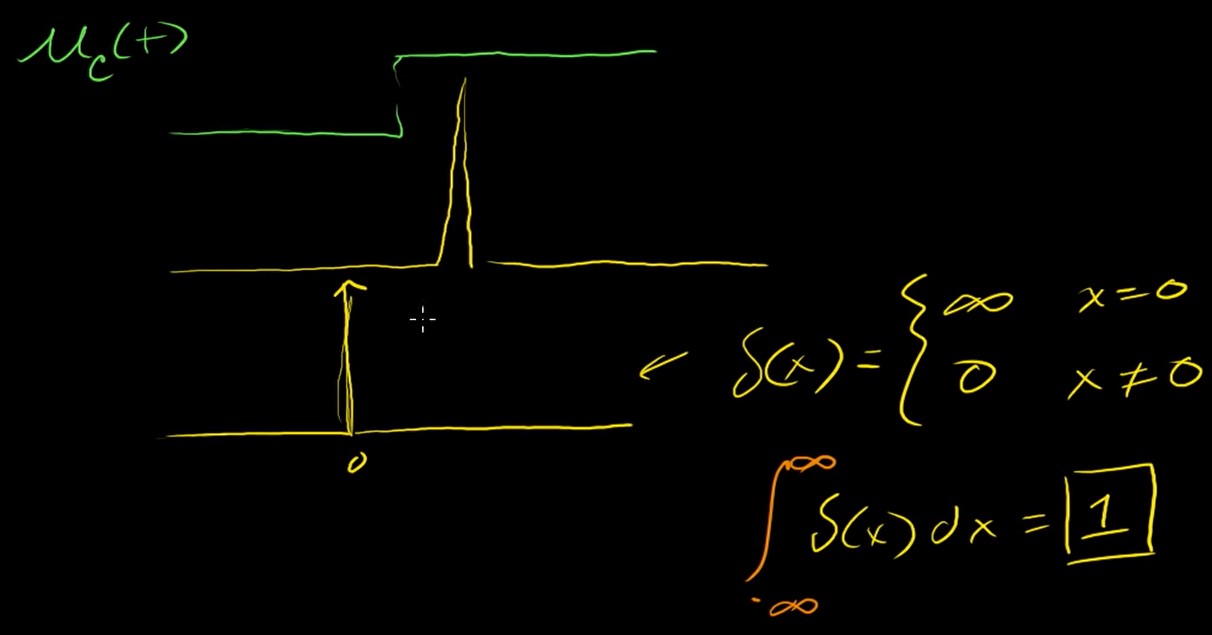 μ_c(t)
δ(x) = { ∞ x = 0
0 x ≠ 0
0
∫_{-∞}^{∞} δ(x) dx = 1